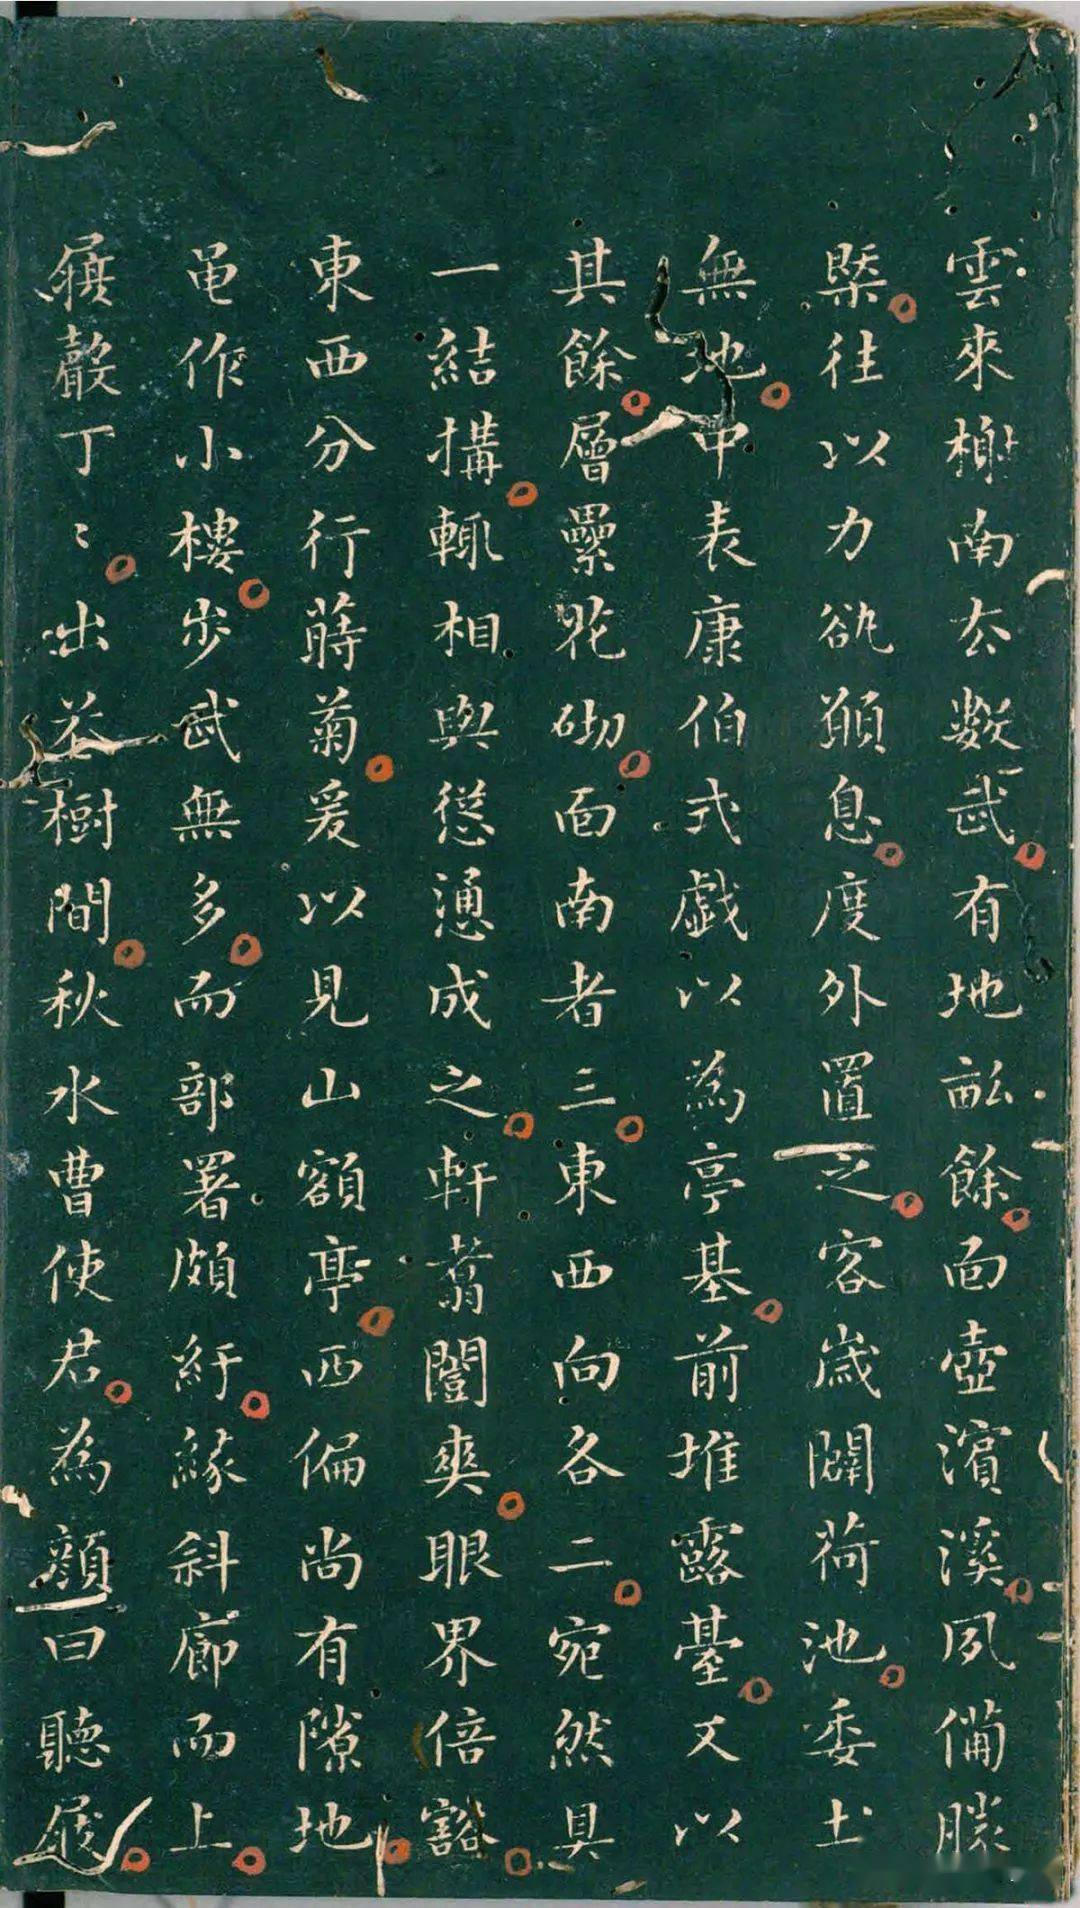 雲來榭南去數武有地畝餘面壺濱溪夙備勝
槩往以力欲順息度外置之客歲闢荷池委土
無地中表康伯式戲以為亭基前堆露臺又以
其餘層纍花砌面南者三東西向各二宛然具
一結搆輒相與慫慂成之軒翥闓爽眼界倍豁
東西分行蒔菊爰以見山額亭西偏尚有隙地
黽作小樓步武無多而部署頗紆緣斜廊而上
屐聲丁〻出花樹間秋水曹使君為顏曰聽屐